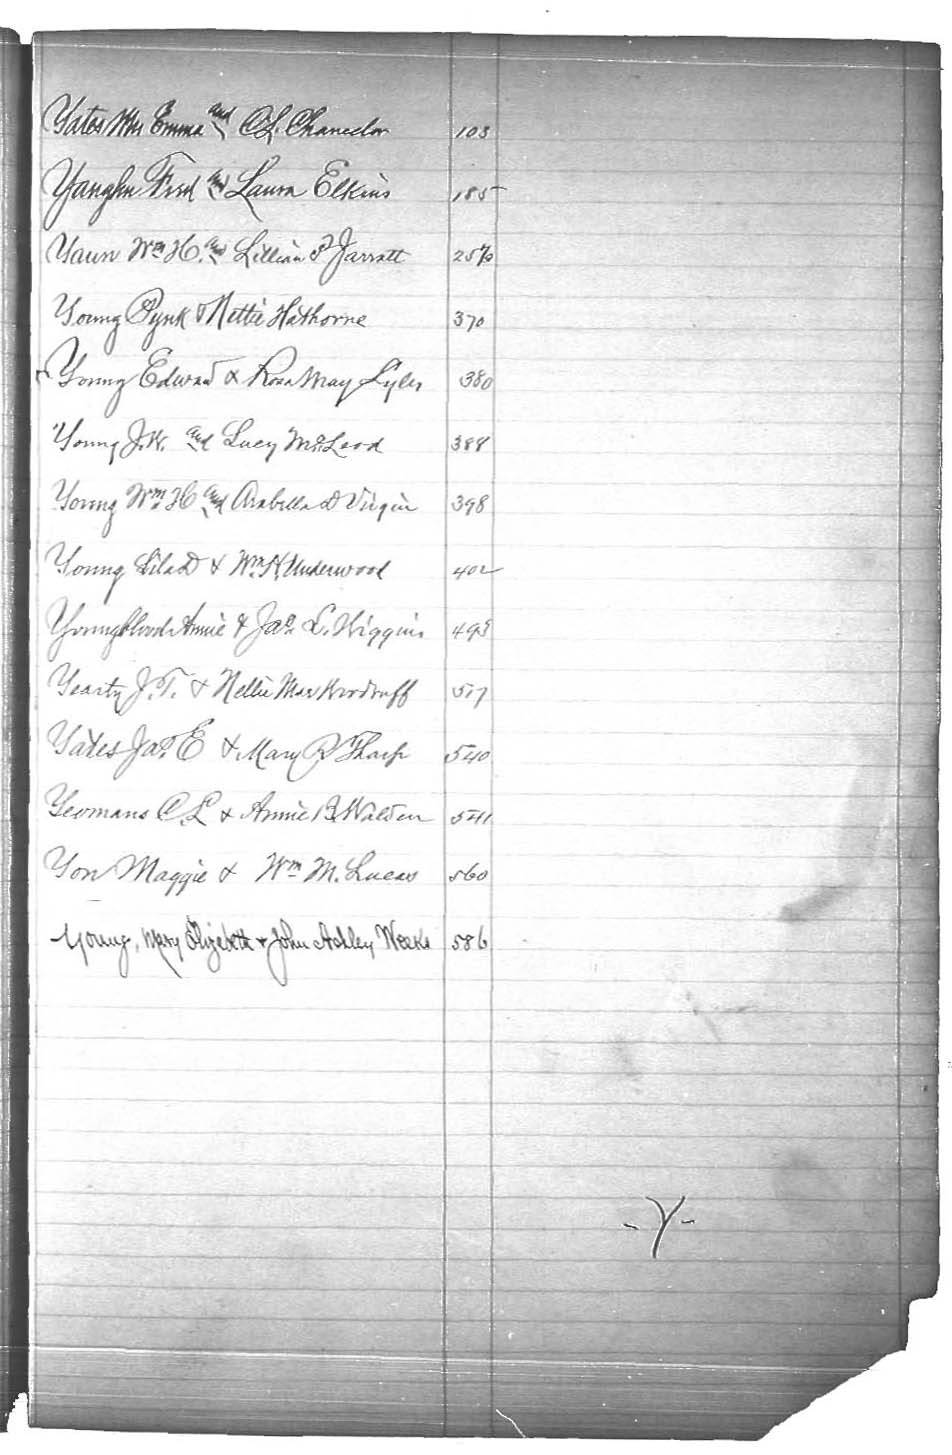 Yates Mrs Emma and C L. Chancelor 103
Yaughn Fred and Laura Elkins 185
Yaun Wm H. and Lillian F Jarratt
Young Pynk & Nettie Hathorne 370
Young Edward & Rosa May Lyles 380
Young J.W. and Lucy McLeod 388
Young Wm H and Arabella D Virgin 398
Young Lila D & Wm H Underwood 402
Youngblood Annie & Jas. L. Wiggins 495
Yearty J. T. & Nellie Mae Woodruff 517
Yates Jas. E & Mary R Tharp 540
Yeomans C. L & Annie B. Walden 541
Yon Maggie & Wm M. Lucas 560
Young, Mary Elizabeth & John Ashley Weeks 586
- Y -